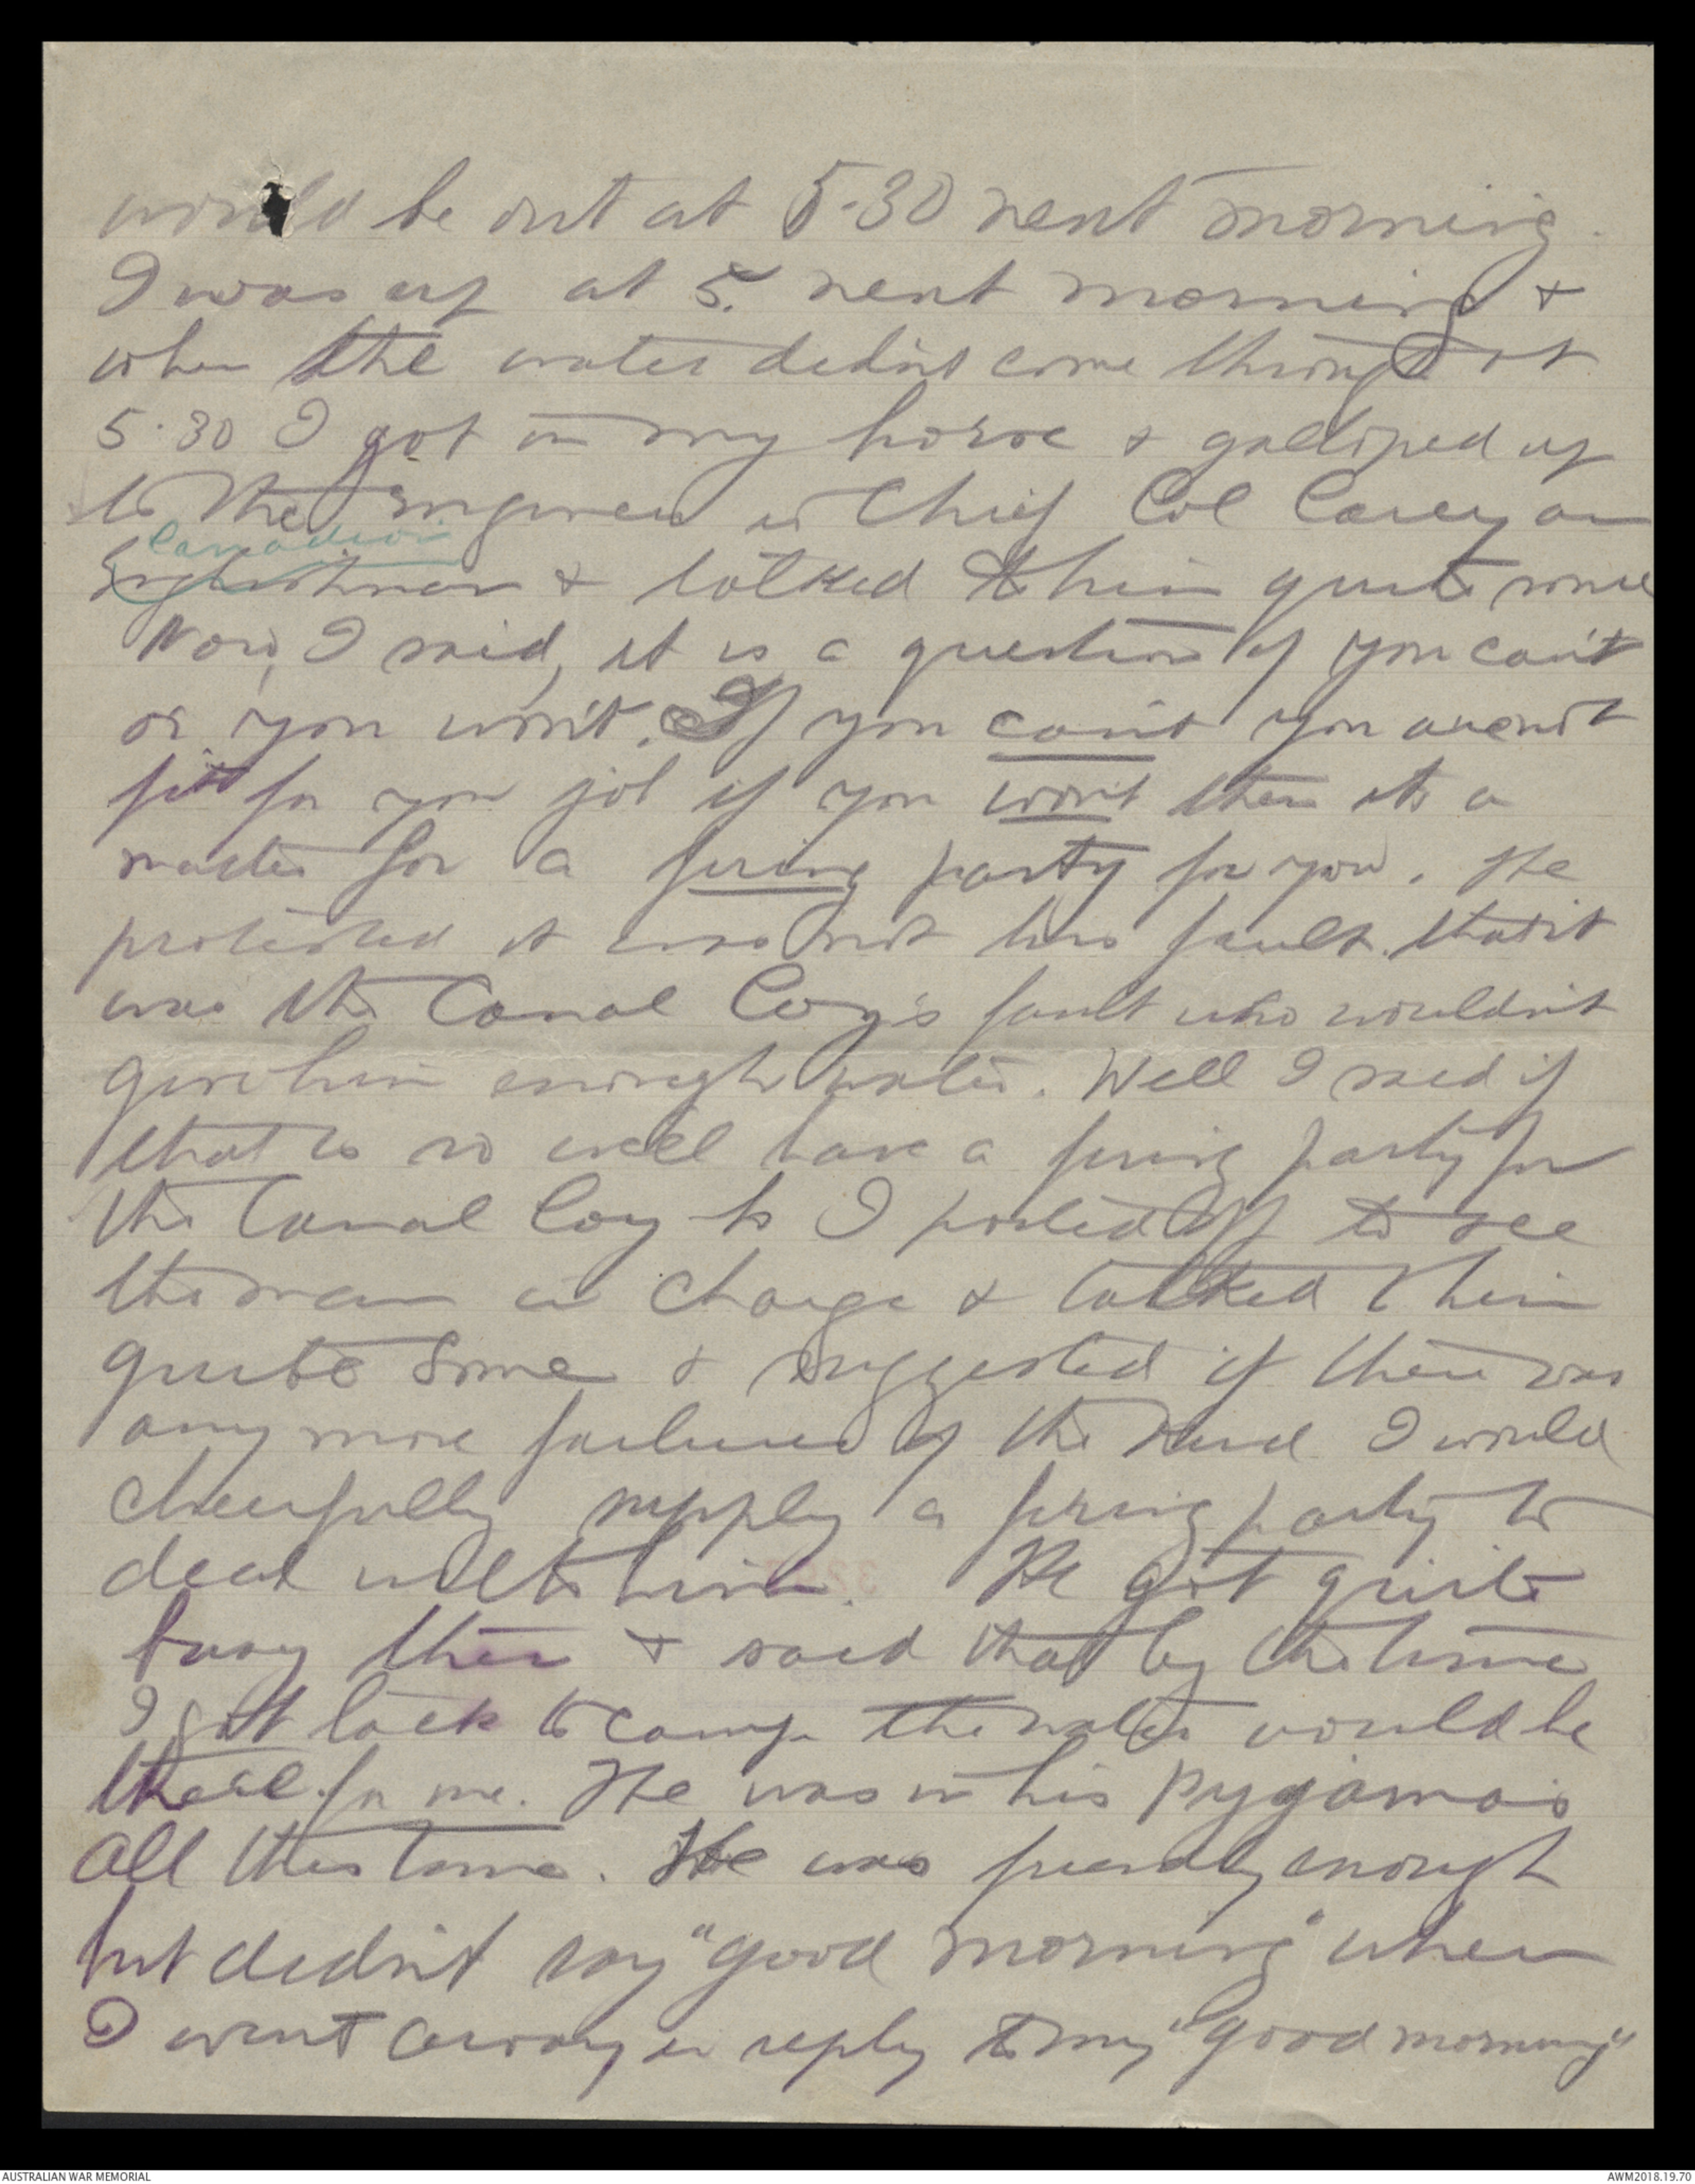 would be out at 5.30 next morning.
I was up at 5. next morning &
when the water didn't come through at
5.30 I got on my horse & galloped up
to the Engineer in Chief Col Carey an
Canadian
Englishman & talked to him quite some
Now, I said, it is a question of you can't
or you won't. If you can't you aren't
fit for you job if you won't then its a
matter for a firing party for you. He
protested it was not his fault. that it
was the Canal Coy's fault who wouldn't
give him enough water. Well I said if
that is so well have a firing party for
the Canal Coy So I posted off to see
the man in charge & talked to him
quite some & suggested if there was
any more failures of the kind I would
cheerfully supply a firing party to
deal with him. He got quite
busy then & said that by the time
I got back to camp the water would be
there for me. He was in his pygamas
all this time. He was friendly enough
but didn't say "good morning" when
I went away in reply to my "good morning"
AUSTRALIAN WAR MEMORIAL
AWM2018.19.70